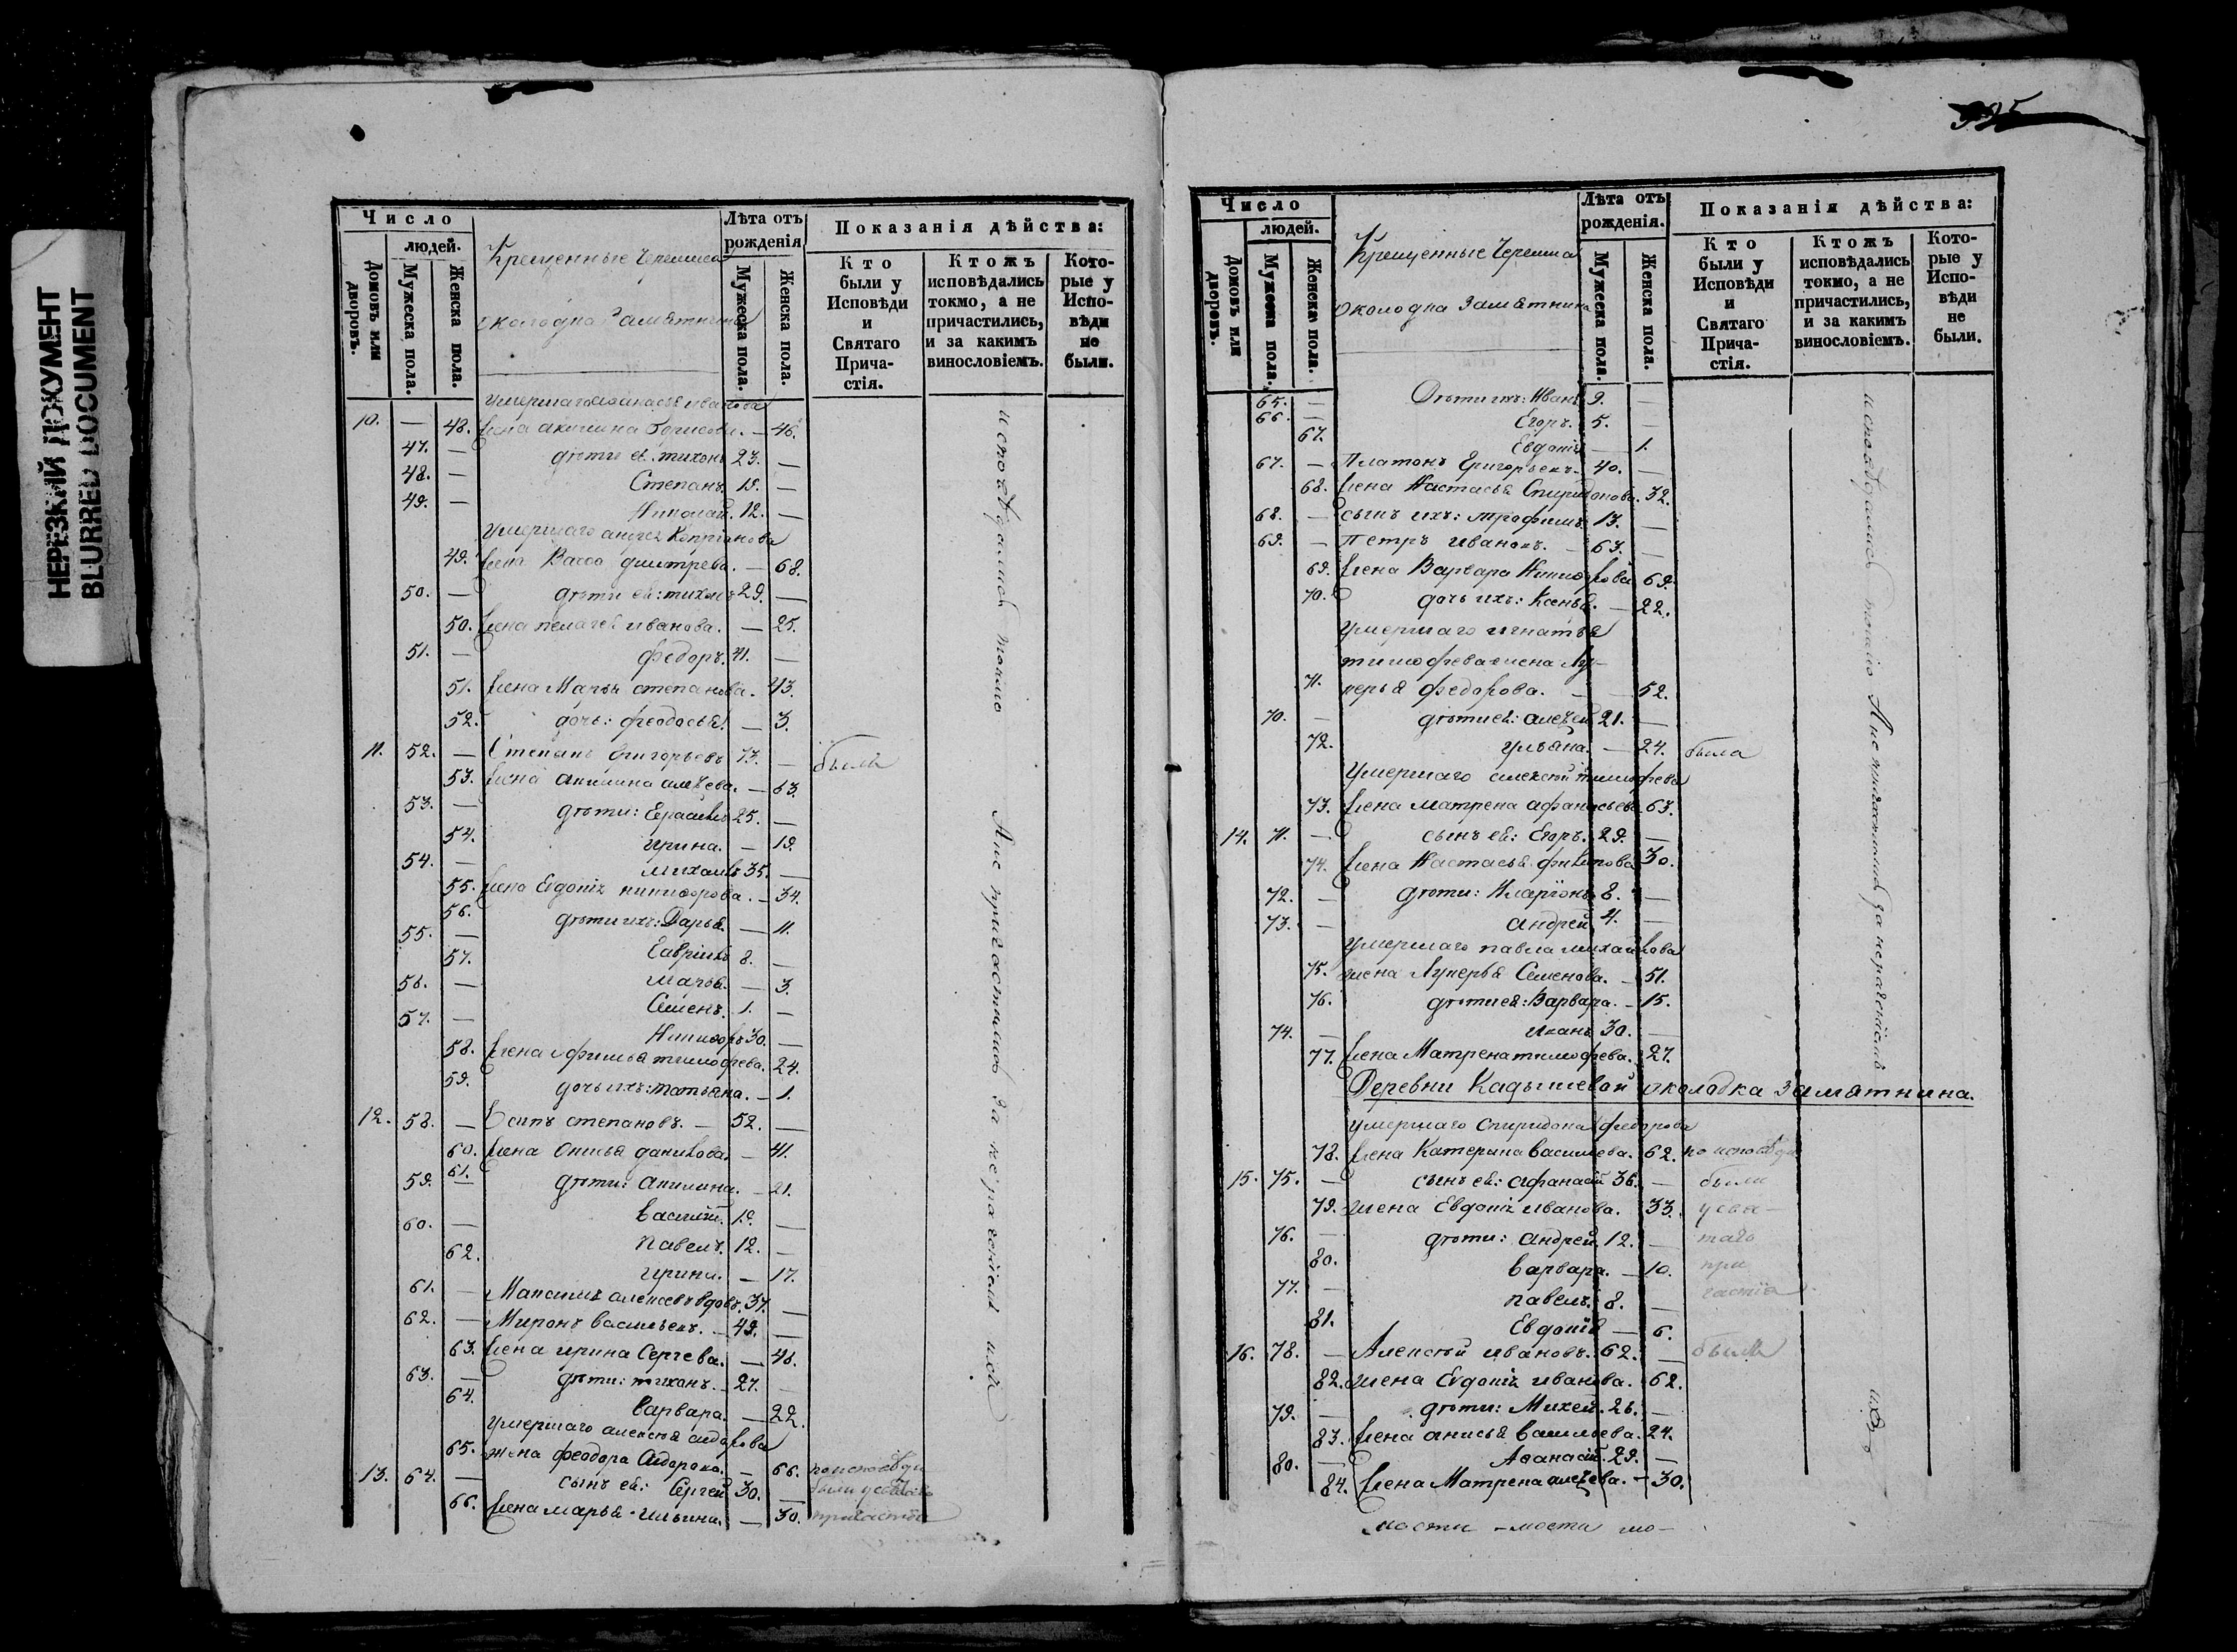 НЕРЕЗКИЙ ДОКУМЕНТ
BLURRED DOCUMENT
Число
людей.
Домовъ или дворовъ.
Мужеска пола.
Женска пола.
Крещенные Черемиса
околодка Заматнина
Лѣта отъ рожденія
Мужеска пола.
Женска пола.
Показанія дѣйства:
Кто были у Исповѣди и Святаго Прича-стія.
Ктожъ исповѣдались токмо, а не причастились, и за какимъ винословіемъ.
Кото-рые у Испо-вѣди не были.
умершаго Афанасья Иванова
10. — 48. жена акилина борисова. — 46.
47. — дѣти ея. тихонъ 23. —
48. — Степанъ. 19. —
49. — Николай. 12. —
умершаго андрея Кипріанова
49. жена Васса дмитрева. — 68.
50. — дѣти ея: тихонъ 29. —
50. жена пелагея иванова. — 25.
51. — федоръ. 41. —
51. жена Марья степанова. — 43.
52. дочь: феодосья — 3.
11. 52. — Степанъ григорьевъ 73. — были
53. жена акилина алѣева. — 63.
53. — дѣти: Герасимъ 25. —
54. ирина. — 19.
54. — михаилъ 35. —
55. жена Евдокія никифорова. — 34.
56. дѣти ихъ: Дарья. — 11.
55. — Гавріилъ 8. —
57. марья. — 3.
56. — Семенъ. 1. —
57. — Никифоръ 30. —
58. жена афимья тимофева. 24.
59. дочь ихъ: татьяна. — 1.
12. 58. — Есипъ степановъ. — 52. —
60. жена Онисья данилова. — 41.
59. 61. дѣти: акилина. — 21.
Василій. 19. —
60. — павелъ. 12. —
62. ирина. — 17.
61. — Максимъ алексеевъ вдовъ. 37. —
62. — Миронъ васильевъ. — 49. —
63. жена ирина Сергева. — 46.
63. — дѣти: тихонъ. — 27. —
64. варвара. — 22.
умершаго алексея сидорова
65. жена феодора Сидорова. — 66. по исповѣди
13. 64. — сынъ ея: Сергей 30. — были у святаго
66. жена марья ильина. — 30. причастія
исповѣдались токмо а не причастились за нерачениемъ
Число
людей.
Домовъ или дворовъ.
Мужеска пола.
Женска пола.
Крещенные Черемиса
околодка Заматнина
Лѣта отъ рожденія.
Мужеска пола.
Женска пола.
Показанія дѣйства:
Кто были у Исповѣди и Святаго Прича-стія.
Ктожъ исповѣдались токмо, а не причастились, и за какимъ винословіемъ.
Кото-рые у Испо-вѣди не были.
65. — Дѣти ихъ: Иванъ 9. —
66. — Егоръ. 5. —
67. Евдокія — 1.
67. — Платонъ Григорьевъ. 40. —
68. жена Настасья Спиридонова. 32.
68. — сынъ ихъ: трофимъ. 13. —
69. — Петръ ивановъ. — 63. —
69. жена Варвара Никифорова 69.
70. дочь ихъ: Ксенья. — 22.
умершаго игнатья
тимофева жена Лу-
71. керья федорова. — 52.
70. — дѣти ея: алексѣй 21. —
72. ульяна. — 24. была
умершаго алексѣя тимофева
73. жена матрена афанасьева 63.
14. 71. — сынъ ея: Егоръ. 29. —
74. жена Настасья филипова 30.
72. — дѣти: Иларіонъ 8. —
73. — андрей 4. —
умершаго павла михайлова
75. жена Лукерья Семенова. — 51.
76. дѣти ея: Варвара. — 15.
74. — иванъ 30. —
77. жена Матрена тимофева. 27.
Деревни Кадышевой околодка Заматнина.
умершаго Спиридона федорова
78. жена Катерина васильева. 62. по исповѣди
15. 75. — сынъ ея: Афанасій 36. — были
79. жена Евдокія иванова. 33. у свя-
76. — дѣти: андрей. 12. — таго
80. варвара. — 10. при
77. — павелъ. 8. — частія
81. Евдокія — 6.
16. 78. — Алексѣй ивановъ. 62. — были
82. жена Евдокія иванова. 62.
79. — дѣти: Михей. 26. —
83. жена анисья васильева. 24.
80. — Афанасій. 29. —
84. жена Матрена алѣева. — 30.
исповѣдались токмо а не причастились за нерачениемъ